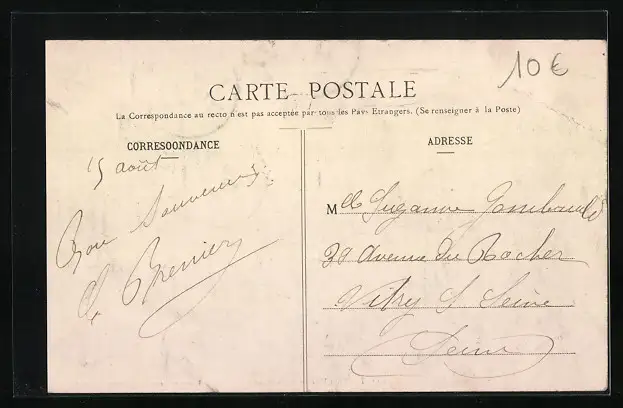 10€
CARTE POSTALE
La Correspondance au recto n'est pas acceptée par tous les Pays Etrangers. (Se renseigner à la Poste)
CORRESOONDANCE
15 août
Bon Souvenir
ADRESSE
Mlle Suzanne Gombauld
30 Avenue du Rocher
Vitry S Seine
Seine